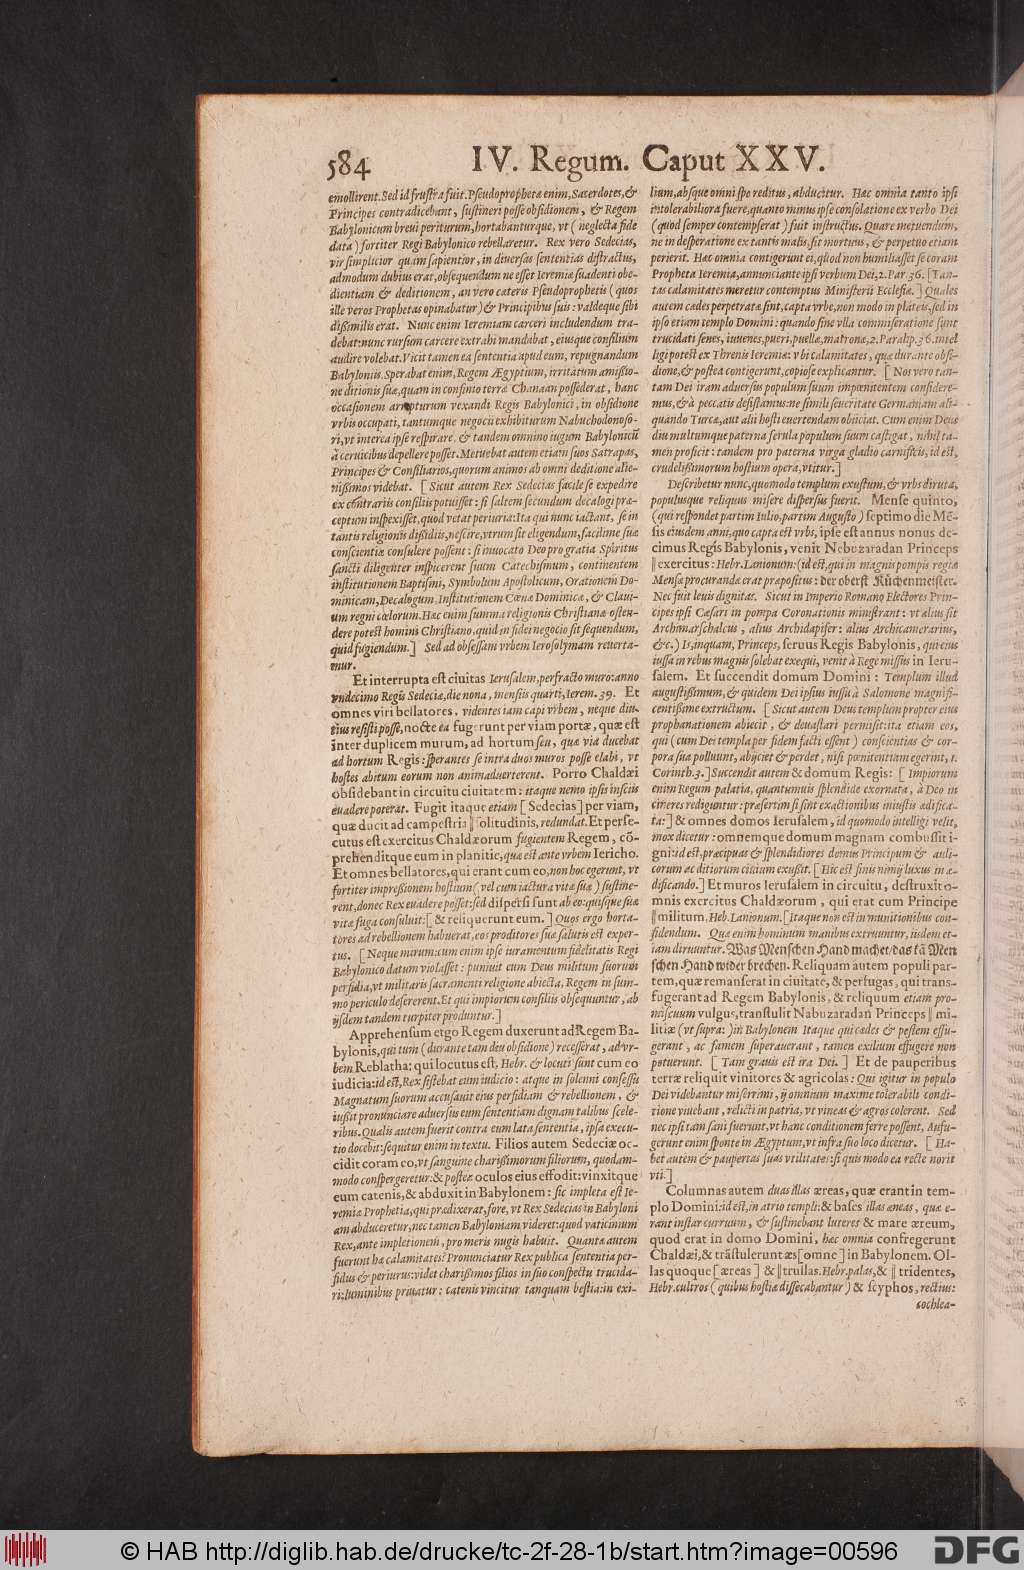 584
IV. Regum. Caput XXV.
emollirent. Sed id frustra fuit. Pseudoprophetæ enim, Sacerdotes, &
Principes contradicebant, sustineri posse obsidionem, & Regem
Babylonicum brevi periturum, hortabanturque, vt (neglecta fide
data) fortiter Regi Babylonico rebellaretur. Rex vero Sedecias,
vir simplicior quam sapientior, in diversas sententias distractus,
admodum dubius erat, obsequendum ne esset Ieremiæ suadenti obe-
dientiam & deditionem, an vero cæteris Pseudoprophetis (quos
ille veros Prophetas opinabatur) & Principibus suis: valdeque sibi
dißimilis erat. Nunc enim Ieremiam carceri includendum tra-
debat: nunc rursum carcere extrahi mandabat, eiusque consilium
audire volebat. Vicit tamen ea sententia apud eum, repugnandum
Babyloniis. Sperabat enim, Regem Ægyptium, irritatum amißio-
ne ditionis suæ, quam in confinio terræ Chanaan possederat, hanc
occasionem arrepturum vexandi Regis Babylonici, in obsidione
vrbis occupati, tantumque negocii exhibiturum Nabuchodonoso-
ri, vt interea ipse respirare, & tandem omnino iugum Babylonicũ
à cervicibus depellere posset. Metuebat autem etiam suos Satrapas,
Principes & Consiliarios, quorum animos ab omni deditione alie-
nißimos videbat. [Sicut autem Rex Sedecias facile se expedire
ex contrariis consiliis potuisset: si saltem secundum decalogi præ-
ceptum inspexisset, quod vetat periuria: Ita qui nunc iactant, se in
tantis religionis dißidiis, nescire, vtrum sit eligendum, facilime suæ
conscientiæ consulere possent: si invocato Deo pro gratia Spiritus
sancti diligenter inspicerent suum Catechismum, continentem
institutionem Baptismi, Symbolum Apostolicum, Orationem Do-
minicam, Decalogum, Institutionem Cœnæ Dominicæ, & Clavi-
um regni cœlorum. Hæc enim summa religionis Christianæ osten-
dere potest homini Christiano, quid in fidei negocio sit sequendum,
quid fugiendum.] Sed ad obsessam vrbem Ierosolymam reverta-
mur.
Et interrupta est civitas Ierusalem, perfracto muro: anno
vndecimo Regis Sedeciæ, die nona, mensis quarti, Ierem. 39. Et
omnes viri bellatores, videntes iam capi vrbem, neque diu-
tius resisti posse, nocte ea fugerunt per viam portæ, quæ est
inter duplicem murum, ad hortum seu, quæ via ducebat
ad hortum Regis: sperantes se intra duos muros posse elabi, vt
hostes abitum eorum non animadverterent. Porro Chaldæi
obsidebant in circuitu civitatem: itaque nemo ipsis insciis
evadere poterat. Fugit itaque etiam [Sedecias] per viam,
quæ ducit ad campestria ‖ solitudinis, redundat. Et perse-
cutus est exercitus Chaldæorum fugientem Regem, cõ-
prehenditque eum in planitie, quæ est ante vrbem Iericho.
Et omnes bellatores, qui erant cum eo, non hoc egerunt, vt
fortiter impreßionem hostium (vel cum iactura vitæ suæ) sustine-
rent, donec Rex evadere posset: sed dispersi sunt ab eo: quisque suæ
vitæ fuga consuluit: [& reliquerunt eum.] Quos ergo horta-
tores ad rebellionem habuerat, eos proditores suæ salutis est exper-
tus. [Neque mirum: cum enim ipse iuramentum fidelitatis Regi
Babylonico datum violasset: punivit eum Deus militum suorum
perfidia, vt militaris sacramenti religione abiecta, Regem in sum-
mo periculo desererent. Et qui impiorum consiliis obsequuntur, ab
ijsdem tandem turpiter produntur.]
Apprehensum ergo Regem duxerunt ad Regem Ba-
bylonis, qui tum (durante tam diu obsidione) recesserat, ad vr-
bem Reblatha: qui locutus est, Hebr. & locuti sunt cum eo
iudicia: id est, Rex sistebat eum iudicio: atque in solenni consessu
Magnatum suorum accusavit eius perfidiam & rebellionem, &
iußit pronunciare adversus eum sententiam dignam talibus scele-
ribus. Qualis autem fuerit contra eum lata sententia, ipsa execu-
tio docebit: sequitur enim in textu. Filios autem Sedeciæ oc-
cidit coram eo, vt sanguine charißimorum filiorum, quodam-
modo conspergeretur: & postea oculos eius effodit: vinxitque
eum catenis, & abduxit in Babylonem: sic impleta est Ie-
remiæ Prophetia, qui prædixerat, fore, vt Rex Sedecias in Babyloni
am abduceretur, nec tamen Babyloniam videret: quod vaticinium
Rex, ante impletionem, pro meris nugis habuit. Quantæ autem
fuerunt hæ calamitates? Pronunciatur Rex publica sententia per-
fidus & periurus: videt charißimos filios in suo conspectu trucida-
ri: luminibus privatur: catenis vincitur tanquam bestia: in exi-
lium, absque omni spe reditus, abducitur. Hæc omnia tanto ipsi
intolerabiliora fuere, quanto minus ipse consolatione ex verbo Dei
(quod semper contempserat) fuit instructus. Quare metuendum,
ne in desperatione ex tantis malis, sit mortuus, & perpetuo etiam
perierit. Hæc omnia contigerunt ei, quod non humiliasset se coram
Propheta Ieremia, annunciante ipsi verbum Dei, 2. Par. 36. [Tan-
tas calamitates meretur contemptus Ministerii Ecclesiæ.] Quales
autem cædes perpetratæ sint, capta vrbe, non modo in plateis, sed in
ipso etiam templo Domini: quando sine vlla commiseratione sunt
trucidati senes, iuvenes, pueri, puellæ, matronæ, 2. Paralip. 36. intel
ligi potest ex Threnis Ieremiæ: vbi calamitates, quæ durante obsi-
dione, & postea contigerunt, copiose explicantur. [Nos vero tan-
tam Dei iram adversus populum suum impœnitentem considere-
mus, & à peccatis desistamus: ne simili severitate Germaniam ali-
quando Turcæ, aut alii hosti evertendam obiiciat. Cum enim Deus
diu multumque paterna ferula populum suum castigat, nihil ta-
men proficit: tandem pro paterna virga gladio carnificis, id est,
crudelißimorum hostium opera, vtitur.]
Describetur nunc, quomodo templum exustum, & vrbs diruta,
populusque reliquus misere dispersus fuerit. Mense quinto,
(qui respondet partim Iulio, partim Augusto) septimo die Mẽ-
sis eiusdem anni, quo capta est vrbs, ipse est annus nonus de-
cimus Regis Babylonis, venit Nebuzaradan Princeps
‖ exercitus: Hebr. Lanionum: (id est, qui in magnis pompis regiæ
Mensæ procurandæ erat præpositus: der oberst Küchenmeister.
Nec fuit levis dignitas. Sicut in Imperio Romano Electores Prin-
cipes ipsi Cæsari in pompa Coronationis ministrant: vt alius sit
Archimarschalcus, alius Archidapifer: alius Archicamerarius,
&c.) Is, inquam, Princeps, servus Regis Babylonis, qui eius
iussa in rebus magnis solebat exequi, venit à Rege missus in Ieru-
salem. Et succendit domum Domini: Templum illud
augustißimum, & quidem Dei ipsius iussu à Salomone magnifi-
centißime extructum. [Sicut autem Deus templum propter eius
prophanationem abiecit, & devastari permisit: ita etiam eos,
qui (cum Dei templa per fidem facti essent) conscientias & cor-
pora sua polluunt, abijciet & perdet, nisi pœnitentiam egerint, 1.
Corinth. 3.] Succendit autem & domum Regis: [Impiorum
enim Regum palatia, quantumvis splendide exornata, à Deo in
cineres rediguntur: præsertim si sint exactionibus iniustis ædifica-
ta:] & omnes domos Ierusalem, id quomodo intelligi velit,
mox dicetur: omnemque domum magnam combussit i-
gni: id est, præcipuas & splendidiores domus Principum & auli-
corum ac ditiorum civium exußit. [Hic est finis nimij luxus in æ-
dificando.] Et muros Ierusalem in circuitu, destruxit o-
mnis exercitus Chaldæorum, qui erat cum Principe
‖ militum, Heb. Lanionum. [Itaque non est in munitionibus con-
fidendum. Quæ enim hominum manibus extruuntur, iisdem et-
iam diruuntur. Was Menschen Hand machet/ das kã Men
schen Hand wider brechen. Reliquam autem populi par-
tem, quæ remanserat in civitate, & perfugas, qui trans-
fugerant ad Regem Babylonis, & reliquum etiam pro-
miscuum vulgus, transtulit Nabuzaradan Princeps ‖ mi-
litiæ (vt supra:) in Babylonem Itaque qui cædes & pestem effu-
gerant, ac famem superaverant, tamen exilium effugere non
potuerunt. [Tam gravis est ira Dei.] Et de pauperibus
terræ reliquit vinitores & agricolas: Qui igitur in populo
Dei videbantur miserrimi, ij omnium maxime tolerabili condi-
tione vivebant, relicti in patria, vt vineas & agros colerent. Sed
nec ipsi tam sani fuerunt, vt hanc conditionem ferre possent, Aufu-
gerunt enim sponte in Ægyptum, vt infra suo loco dicetur. [Ha-
bet autem & paupertas suas vtilitates: si quis modo ea recte norit
vti.]
Columnas autem duas illas æreas, quæ erant in tem-
plo Domini: id est, in atrio templi: & bases illas æneas, quæ e-
rant instar curruum, & sustinebant luteres & mare æreum,
quod erat in domo Domini, hæc omnia confregerunt
Chaldæi, & trãstulerunt æs [omne] in Babylonem. Ol-
las quoque [æreas] & ‖ trullas. Hebr. palas, & ‖ tridentes,
Hebr. cultros (quibus hostiæ dissecabantur) & scyphos, rectius:
cochlea-
© HAB http://diglib.hab.de/drucke/tc-2f-28-1b/start.htm?image=00596
DFG